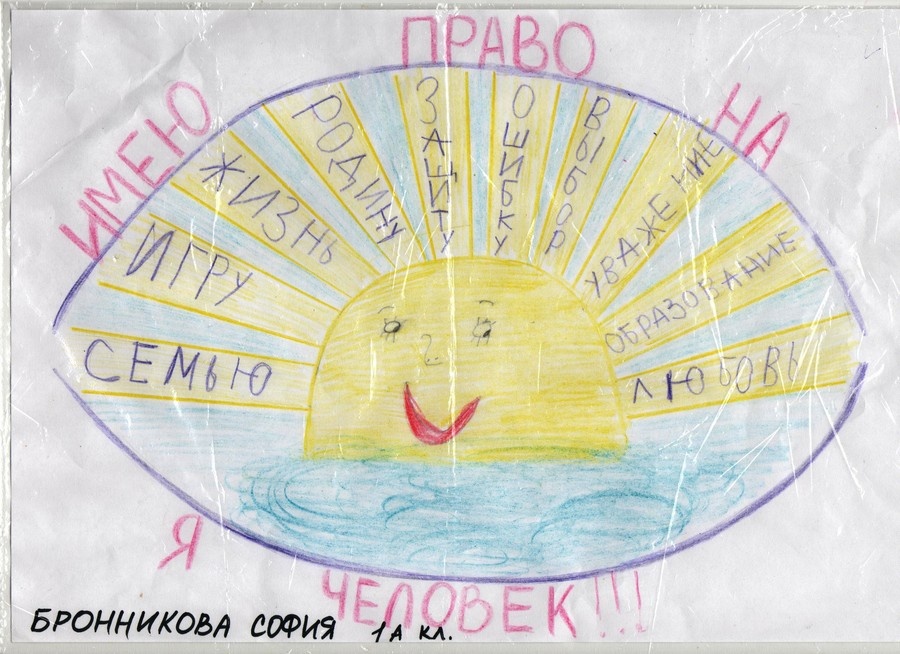 ИМЕЮ ПРАВО НА
СЕМЬЮ
ИГРУ
ЖИЗНЬ
РОДИНУ
ЗАЩИТУ
ОШИБКУ
ВЫБОР
УВАЖЕНИЕ
ОБРАЗОВАНИЕ
ЛЮБОВЬ
Я ЧЕЛОВЕК!!!
БРОННИКОВА СОФИЯ 1А КЛ.